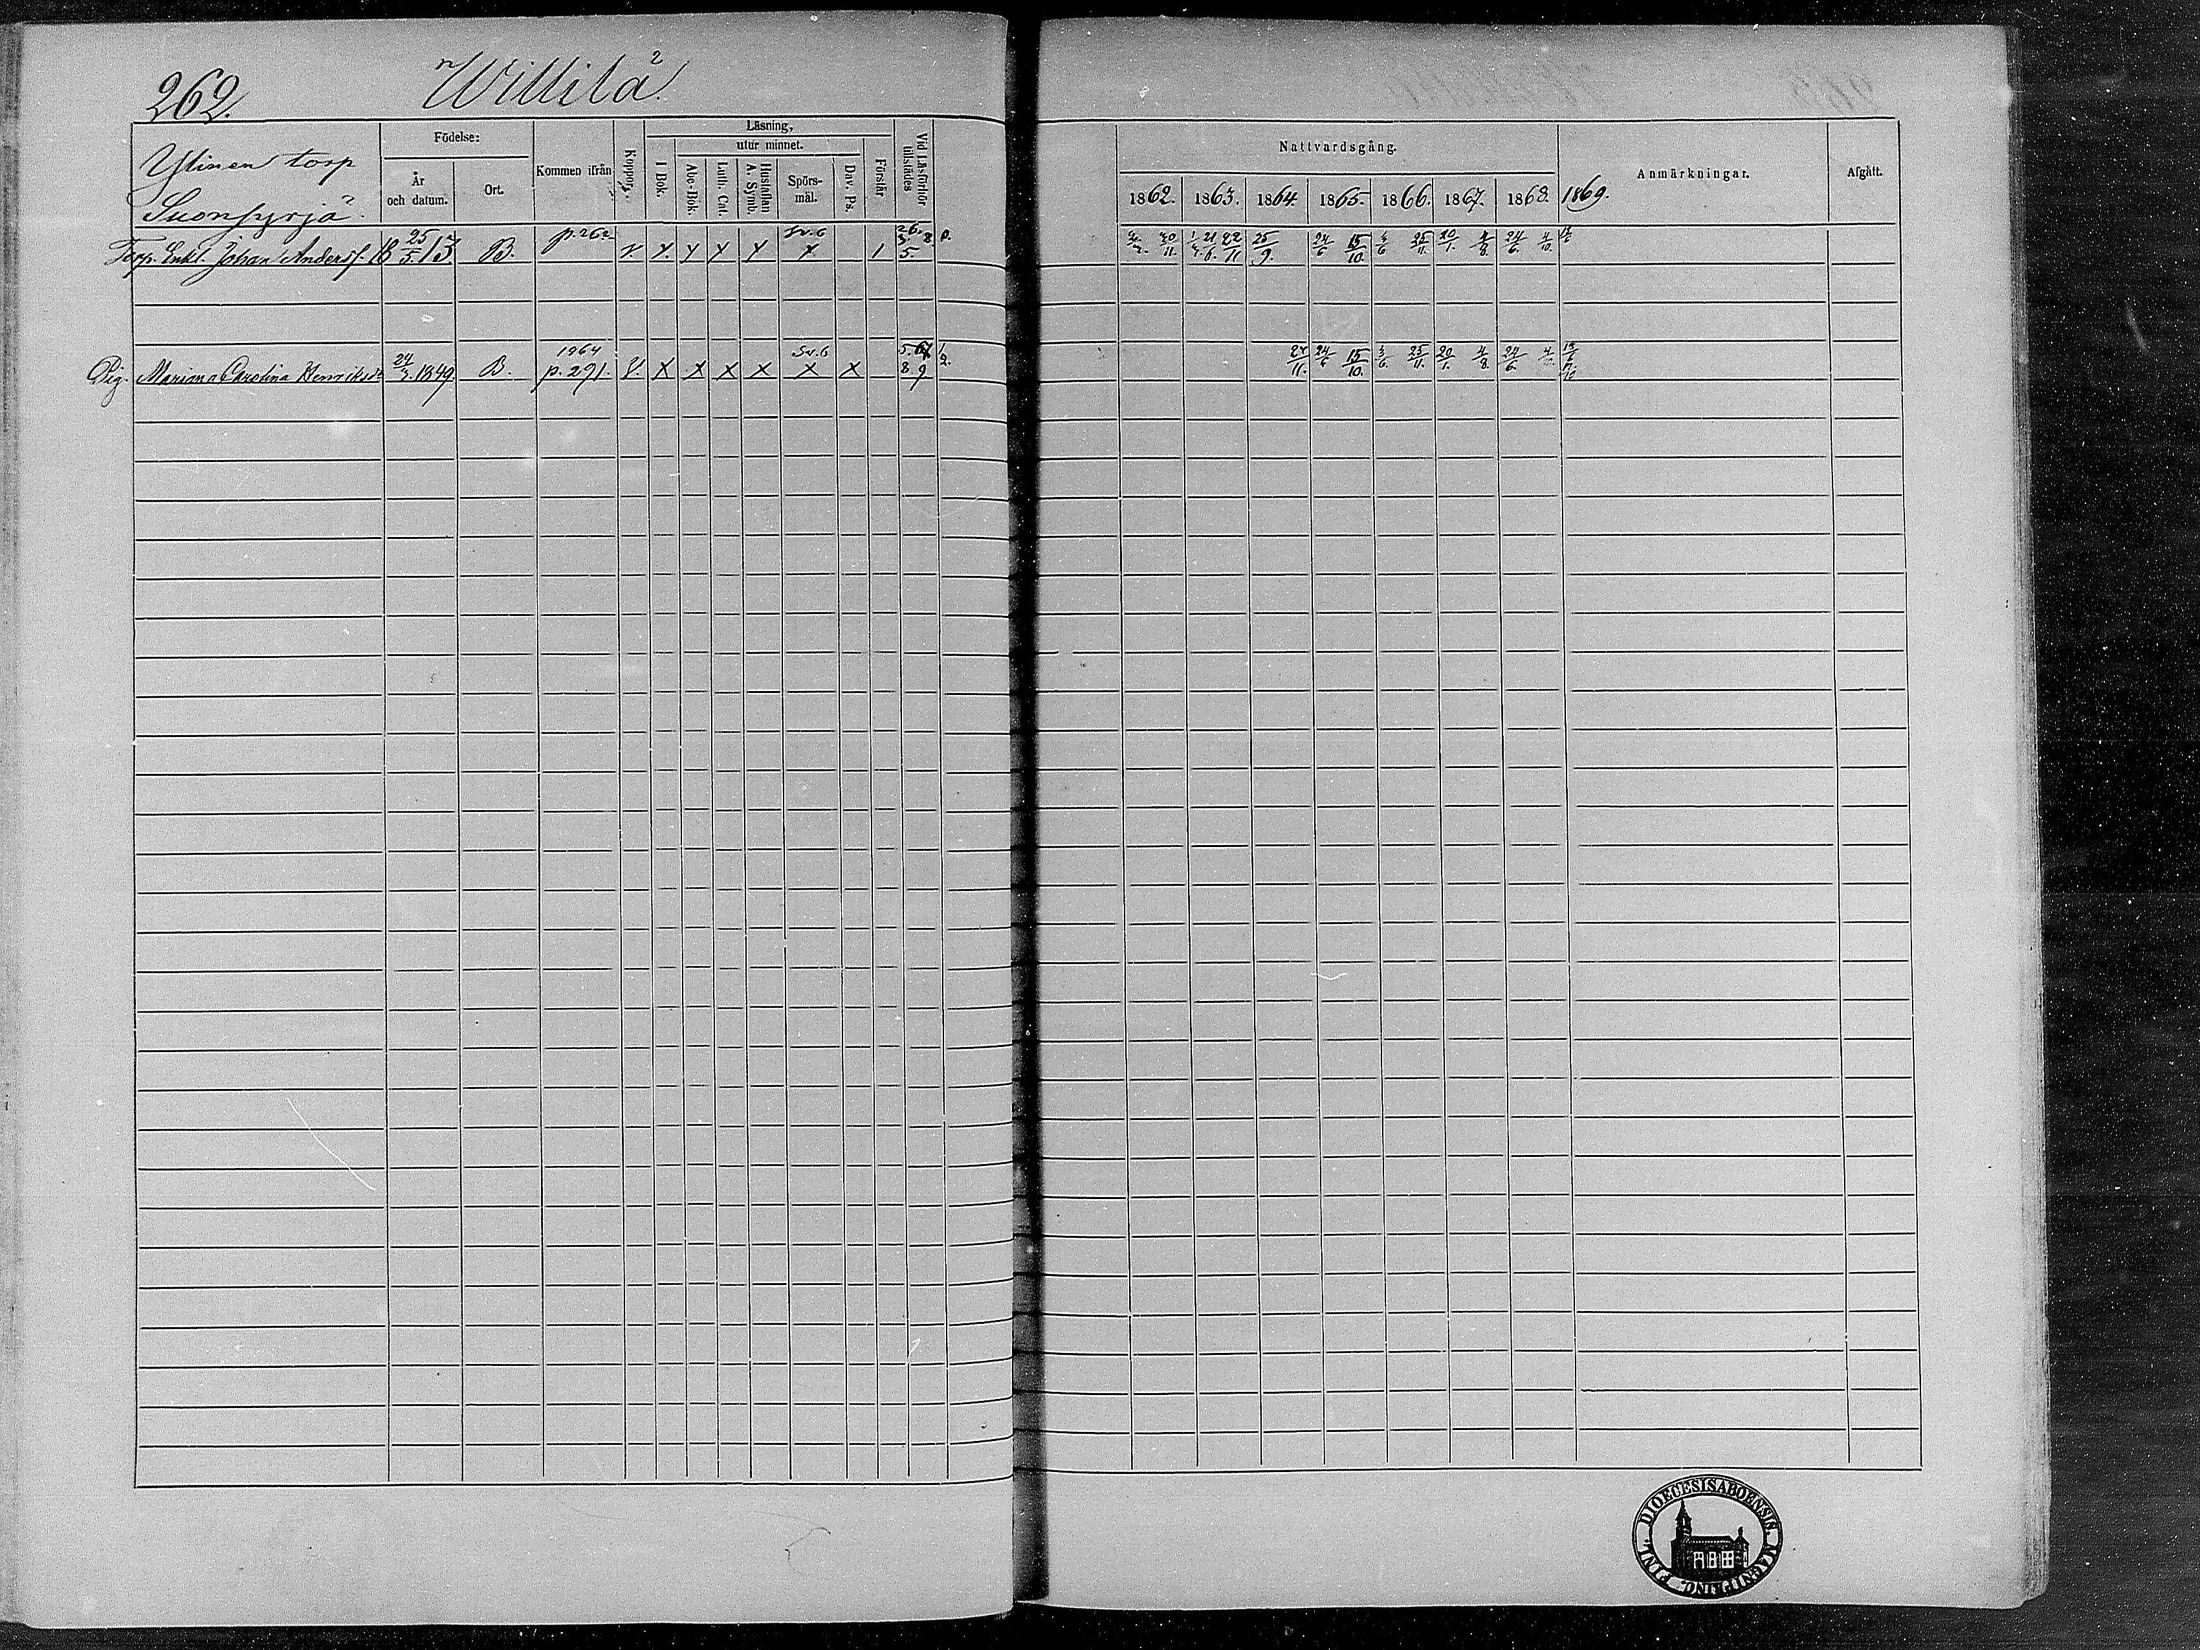 262.
Willilä.
Ylinen torp
Suonsyrjä.
Födelse:
År och datum.
Ort.
Kommen ifrån
Koppor.
Läsning,
utur minnet.
I Bok.
Abc-Bok.
Luth. Cat.
Hustaflan A. Symb.
Spörs-mål.
Dav. Ps.
Förstår
Vid Läsförhör tillstädes
Nattvardsgång.
1862. 1863. 1864. 1865. 1866. 1867. 1868. 1869.
Anmärkningar.
Afgått.
Torp. Enkl. Johan Andersf. 18 25/5 13 B. p. 262 v. x x x x Sv. 6 x 1 5. 30/11. 21/6. 22/11 25/9. 24/6 15/10. 3/6 25/11. 20/1. 4/8. 24/6. 4/10.
Pig. Mariana Carolina Henriksd. 24/3. 1849. B. 1864 p. 291. V. x x x x Sv. 6 x x 5. 67 8. 9 27/11. 24/6 15/10. 3/6. 25/11. 20/1. 4/8. 24/6. 4/10. 13/6
DIOECESIS ABOENSIS MAGNI PRINC. FINL.